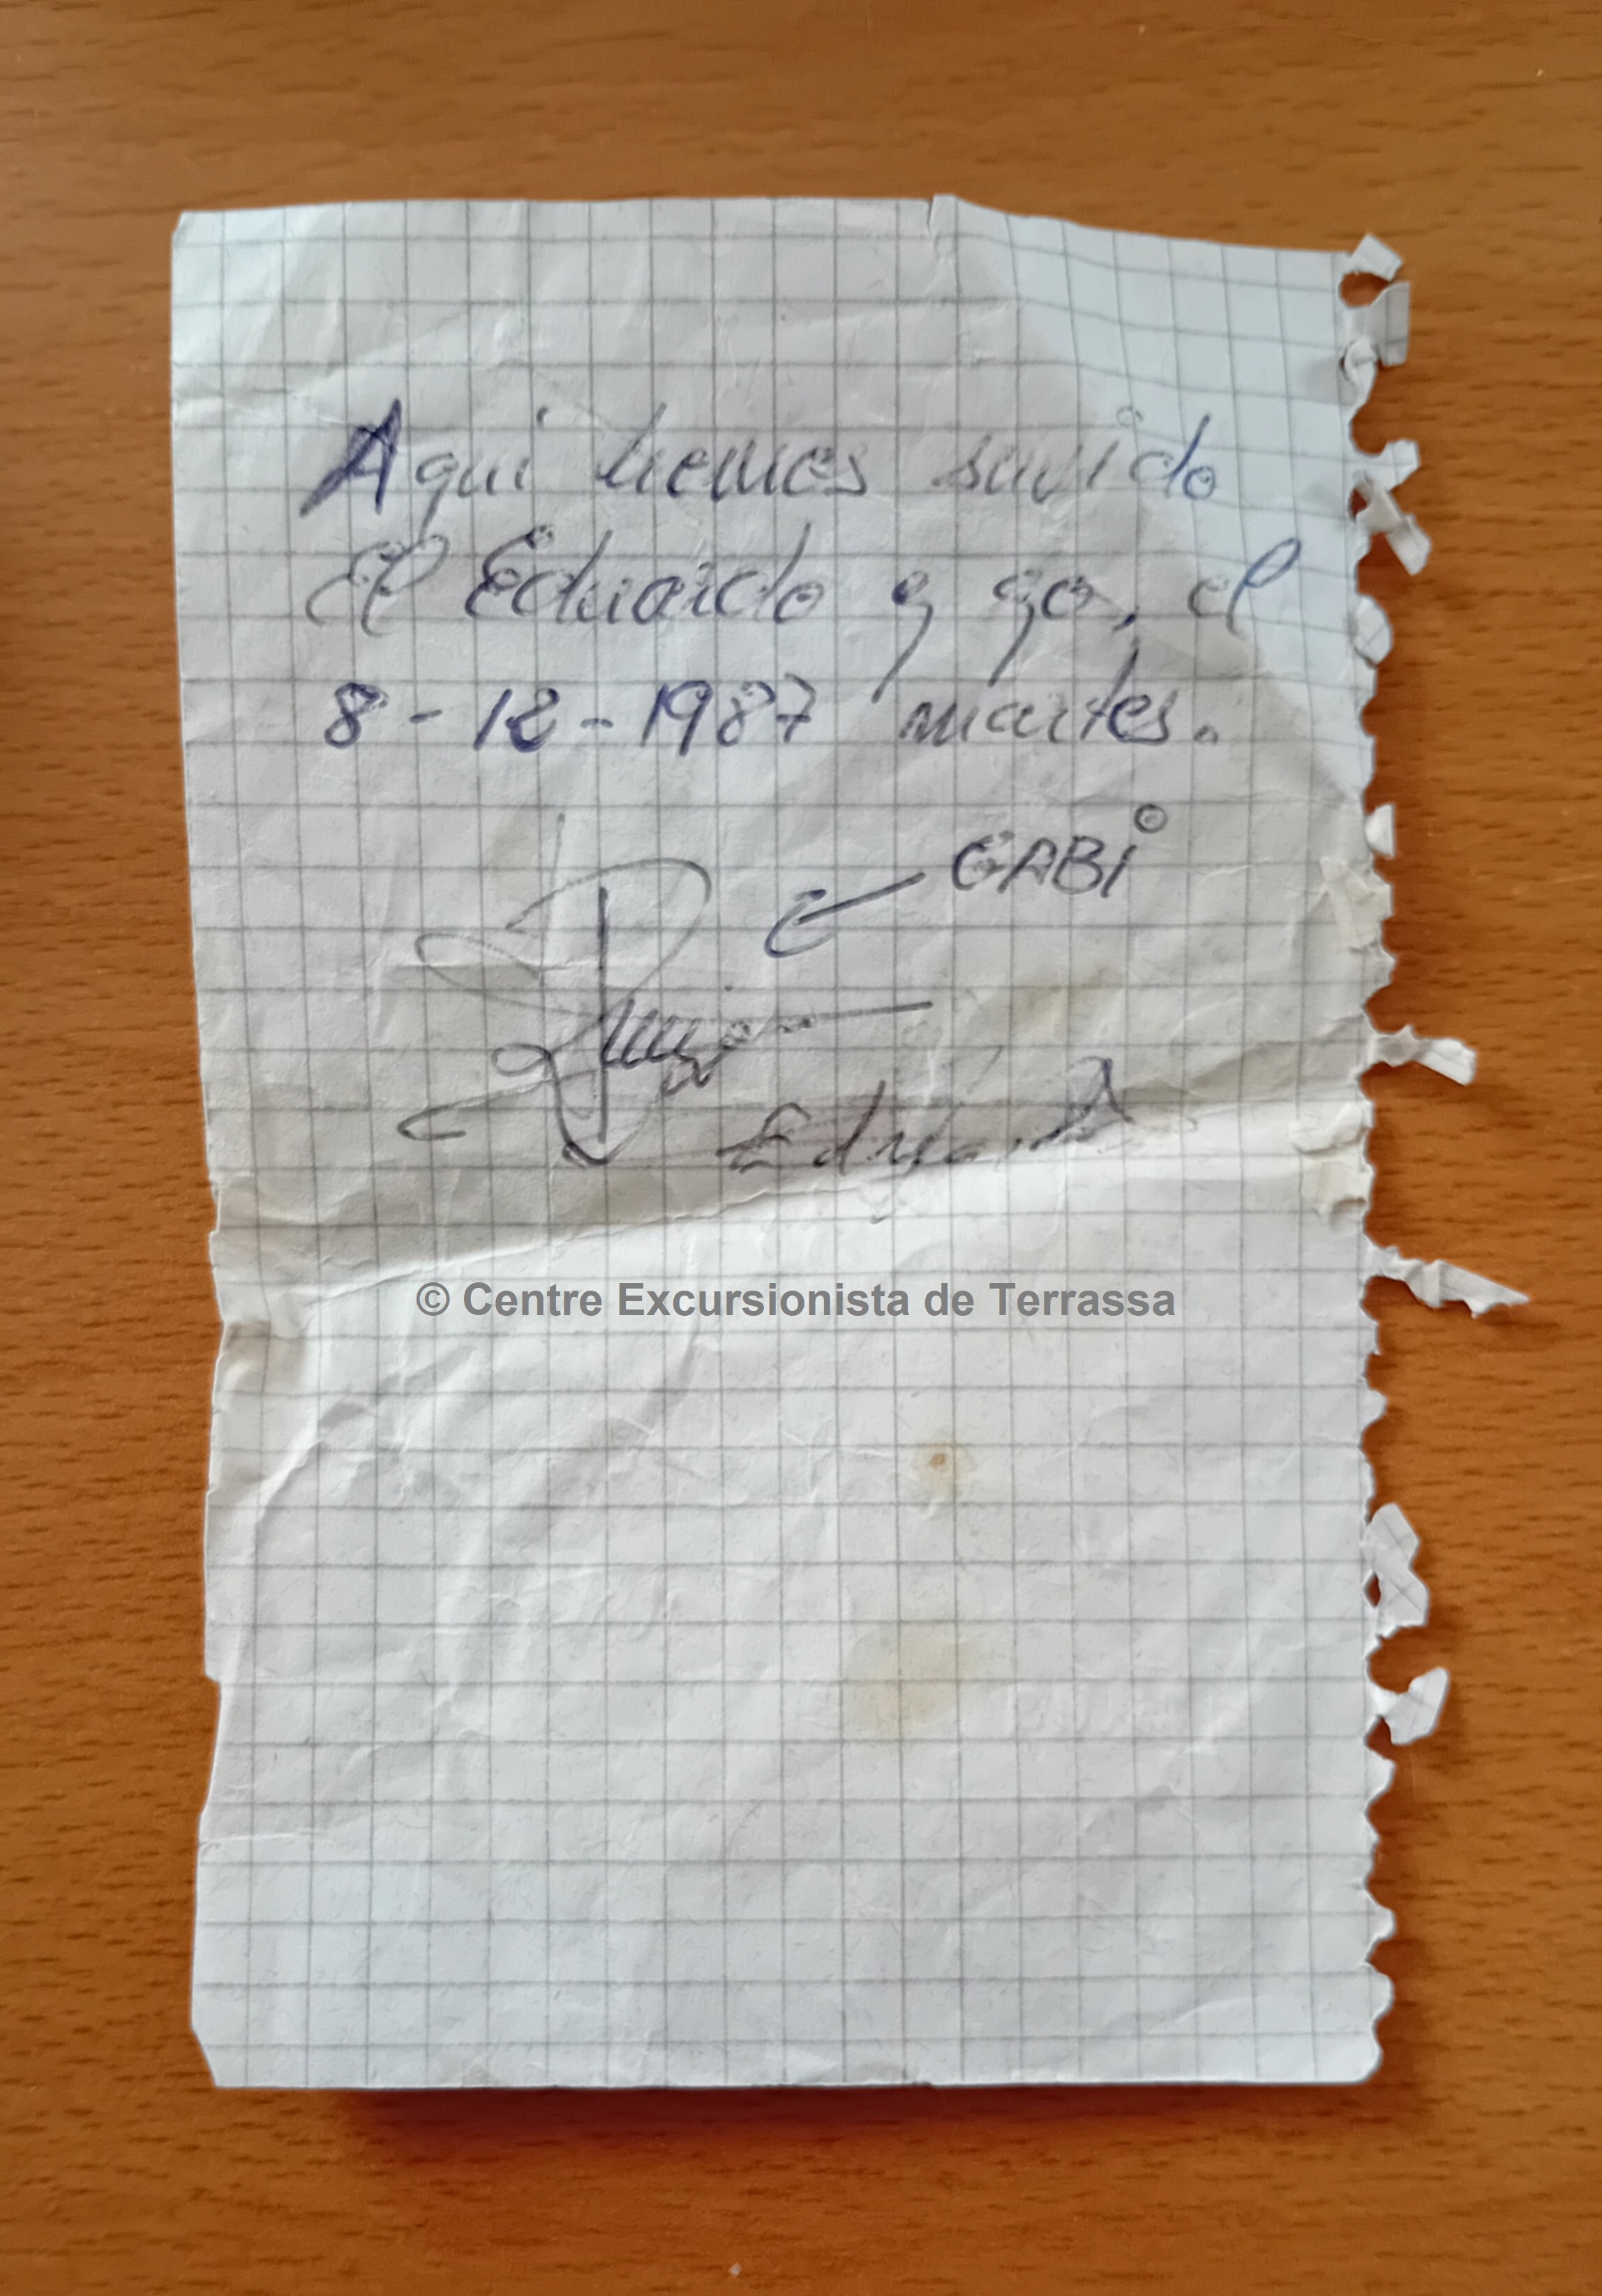 Aqui hemos suvido
El Eduardo y yo, el
8-12-1987 martes.
GABI
Eduardo
© Centre Excursionista de Terrassa